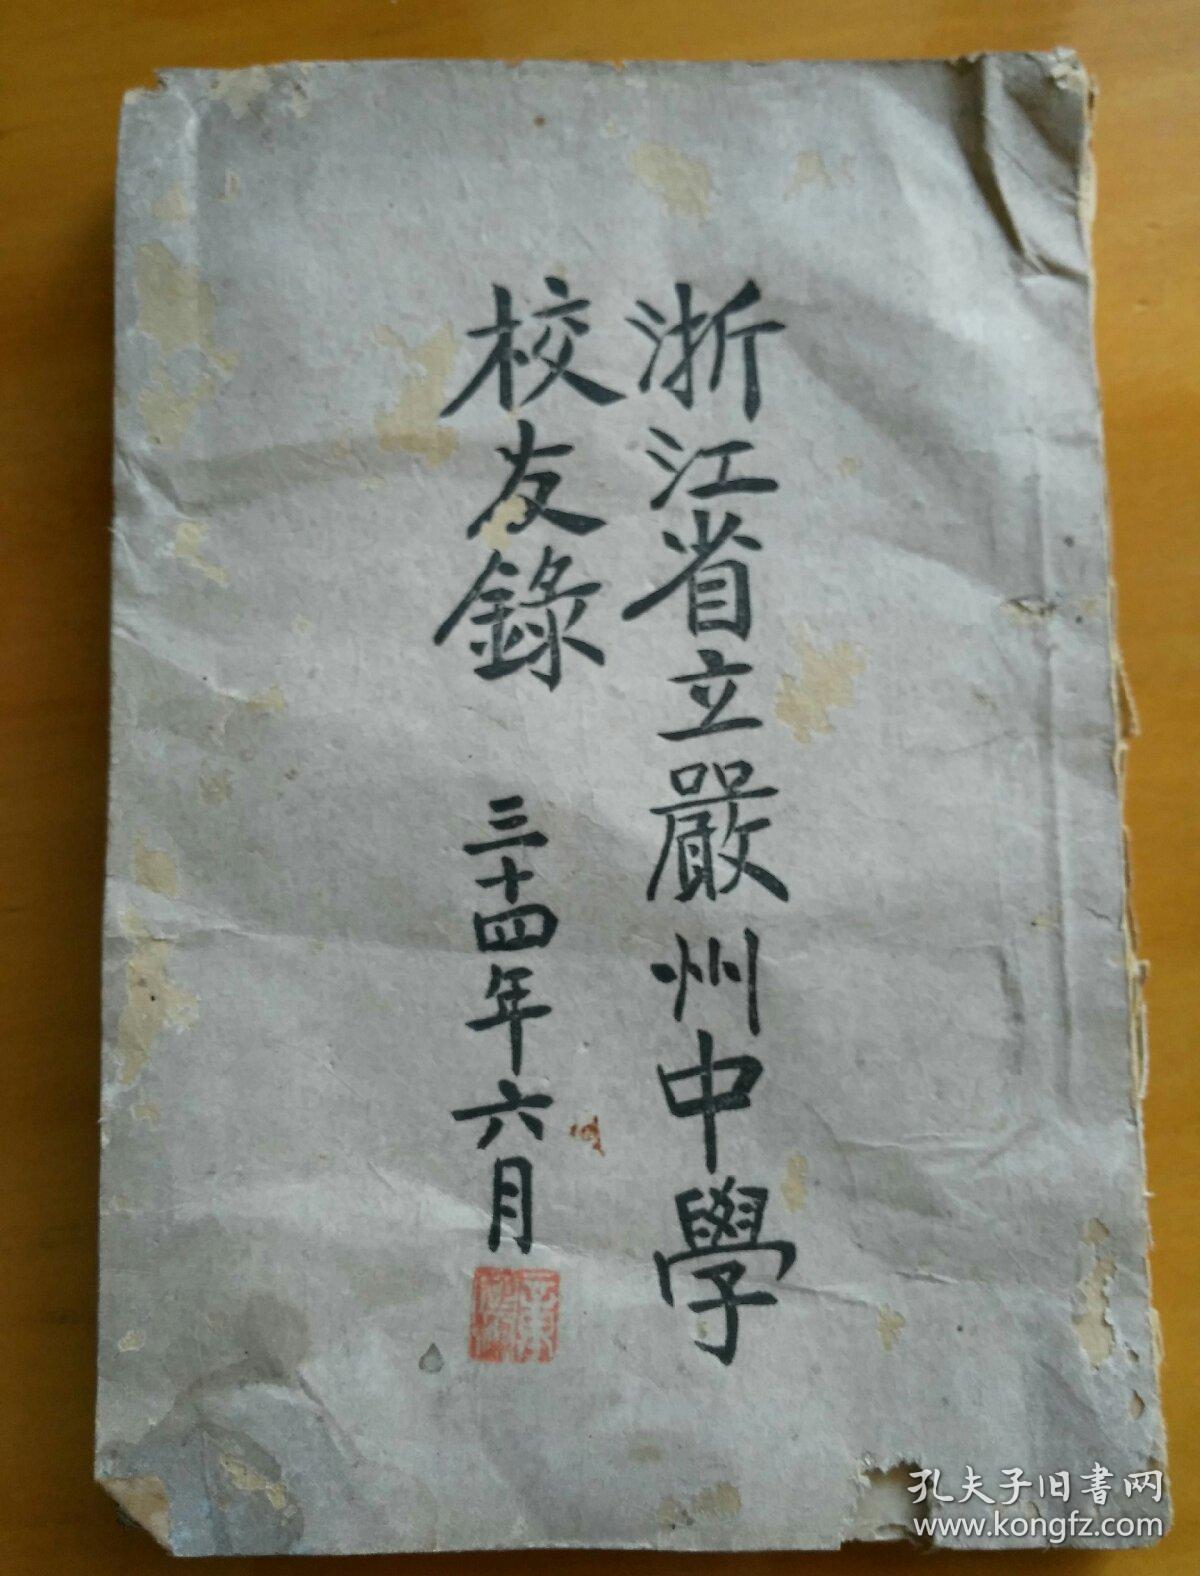 浙江省立嚴州中學
校友錄
三十四年六月
孔夫子旧書网
www.kongfz.com